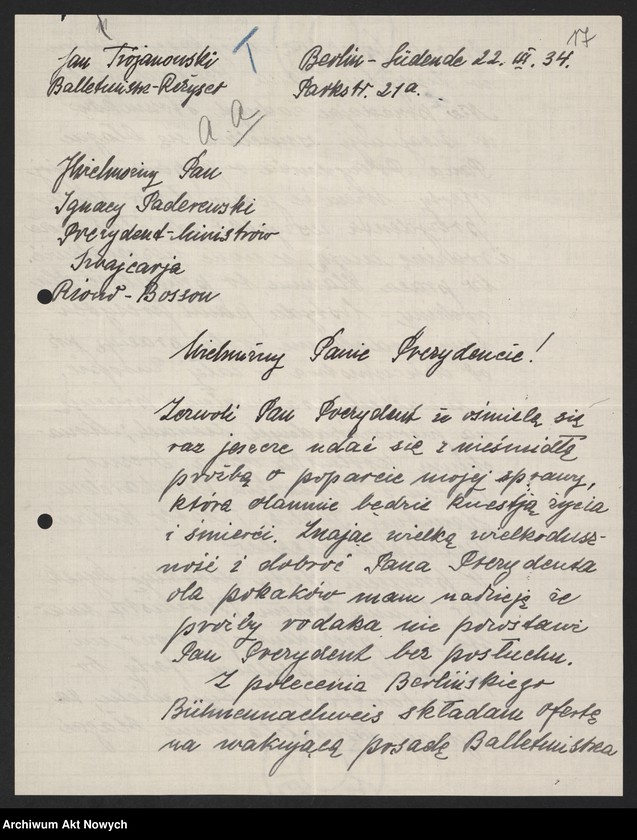 17
Jan Trojanowski
Balletmistrz-Reżyser
T
Berlin-Südende 22. III. 34.
Parkstr. 21a.
a a
Wielmożny Pan
Ignacy Paderewski
Prezydent-Ministrów
Szwajcarja
Riond-Bosson
Wielmożny Panie Prezydencie!
Zezwoli Pan Prezydent że ośmielę się
raz jeszcze udać się z nieśmiałą
prośbą o poparcie mojej sprawy,
która dlamnie będzie kwestją życia
i śmierci. Znając wielką wielkodusz-
ność i dobroć Pana Prezydenta
dla polaków mam nadzieję że
prośby rodaka nie pozostawi
Pan Prezydent bez posłuchu.
Z polecenia Berlińskiego
Bühnennachweis składam ofertę
na wakującą posadę Balletmistrza
Archiwum Akt Nowych